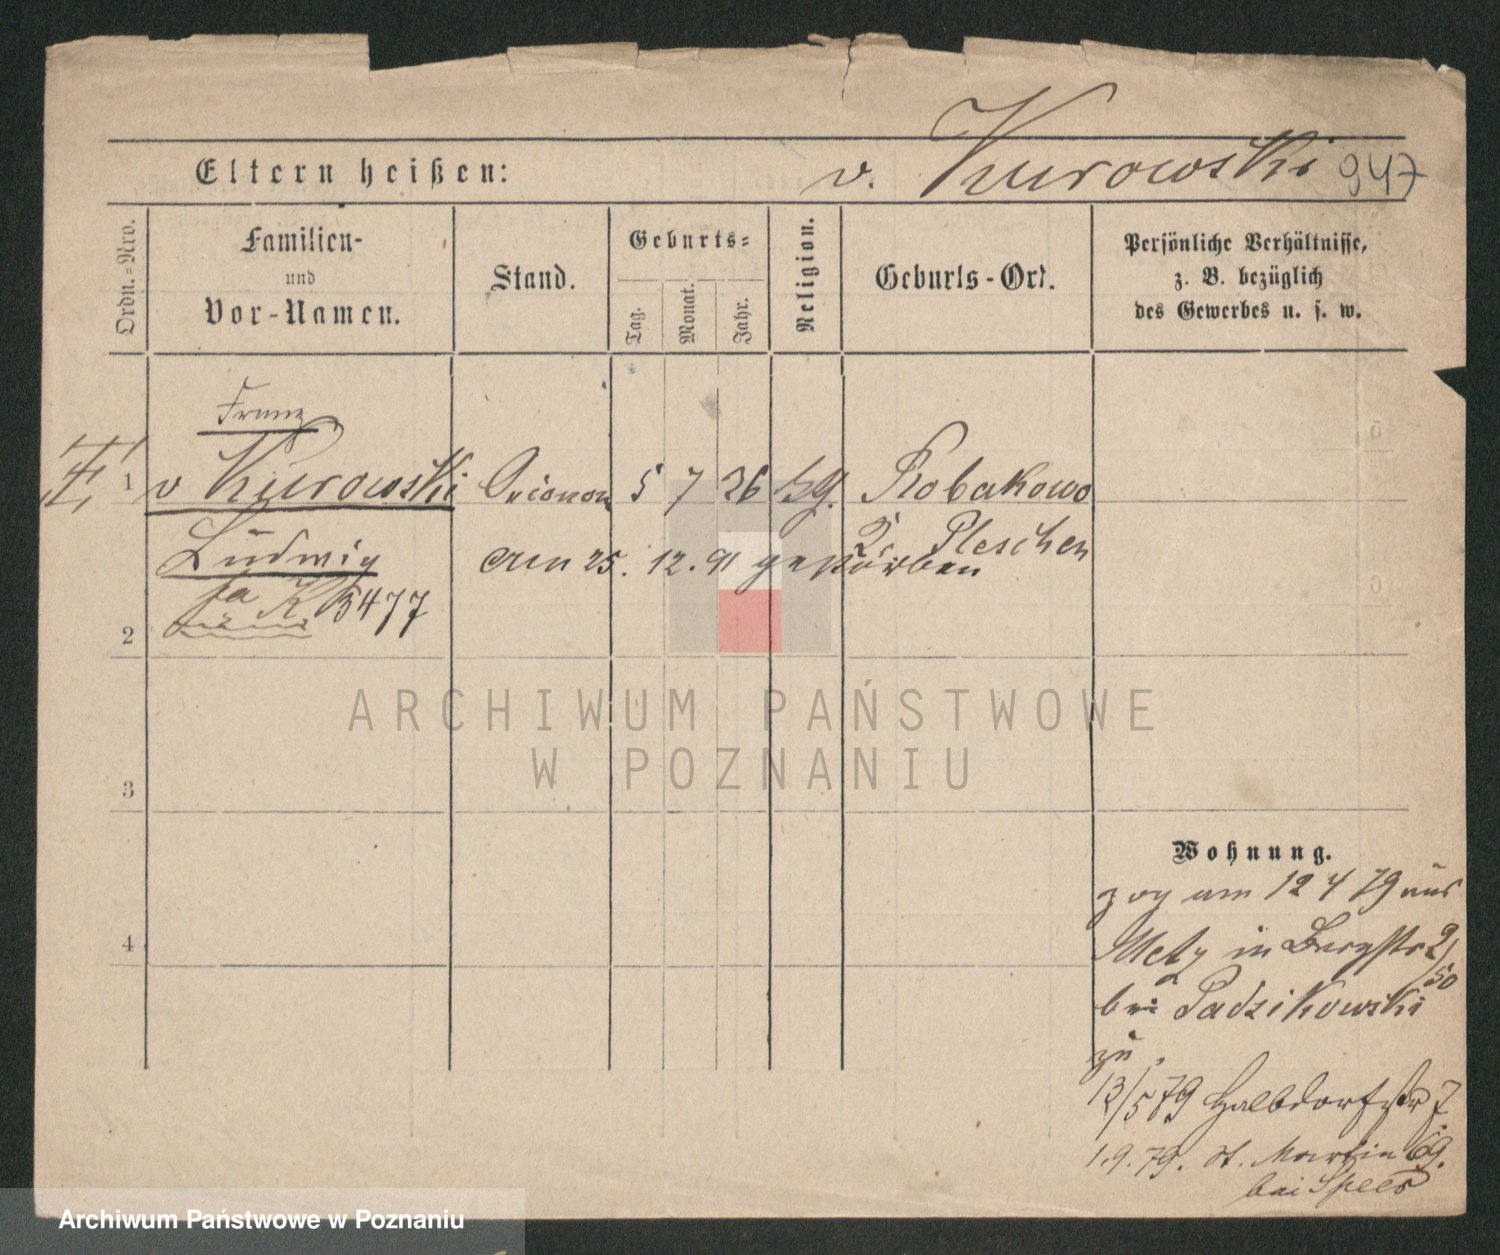 Eltern heißen: v. Kurowski 947
Ordn.-Nro.
Familien-
und
Vor-Namen.
Stand.
Geburts-
Tag.
Monat.
Jahr.
Religion.
Geburts-Ort.
Persönliche Verhältnisse,
z. B. bezüglich
des Gewerbes u. s. w.
Franz
1 v Kurowski 5 7 26 Robakowo
Pleschen
Ludwig am 25. 12. 91 gestorben
K 5477
2
ARCHIWUM PAŃSTWOWE
W POZNANIU
3
4
Wohnung.
zog am 12 4 79 aus
Metz in Bergstr 2/50
bei Padzikowski
zu,
13/5 79 Halbdorfstr 7.
1.9.79. St. Martin 69.
bei Speer
5
6
Archiwum Państwowe w Poznaniu